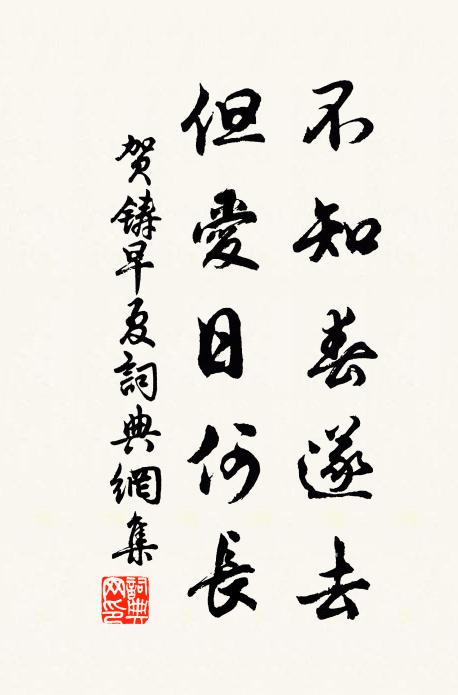 不知春遂去
但愛日何長
賀鑄早夏詞典網集
詞典
网印